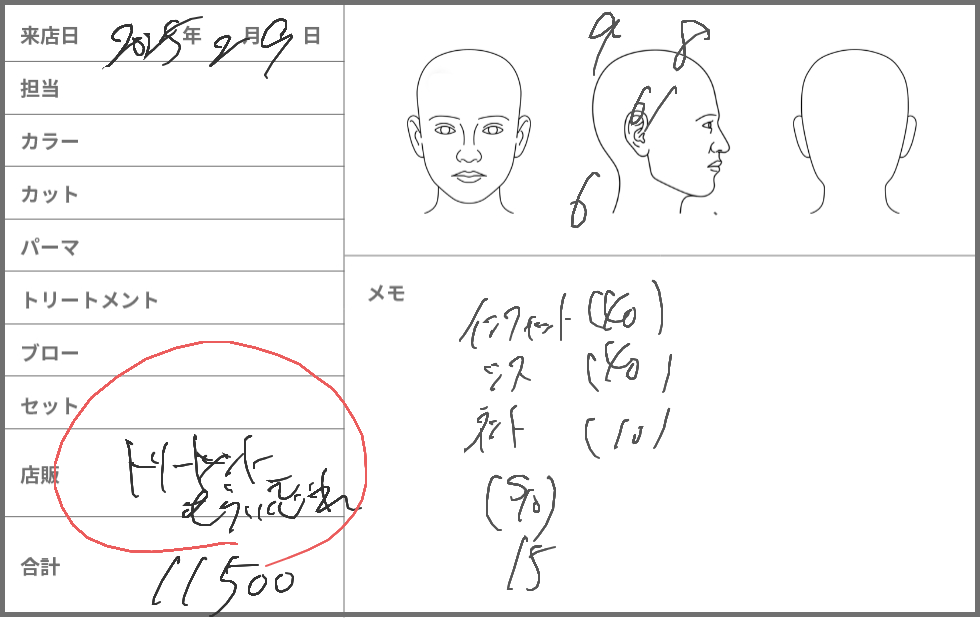 来店日 2025年 2月9日
担当
カラー
カット
パーマ
トリートメント
ブロー
セット
店販 トリートメント
合計 11500
9 8
6
6
メモ
インフィニット (40)
(40)
(10)
(90)
15